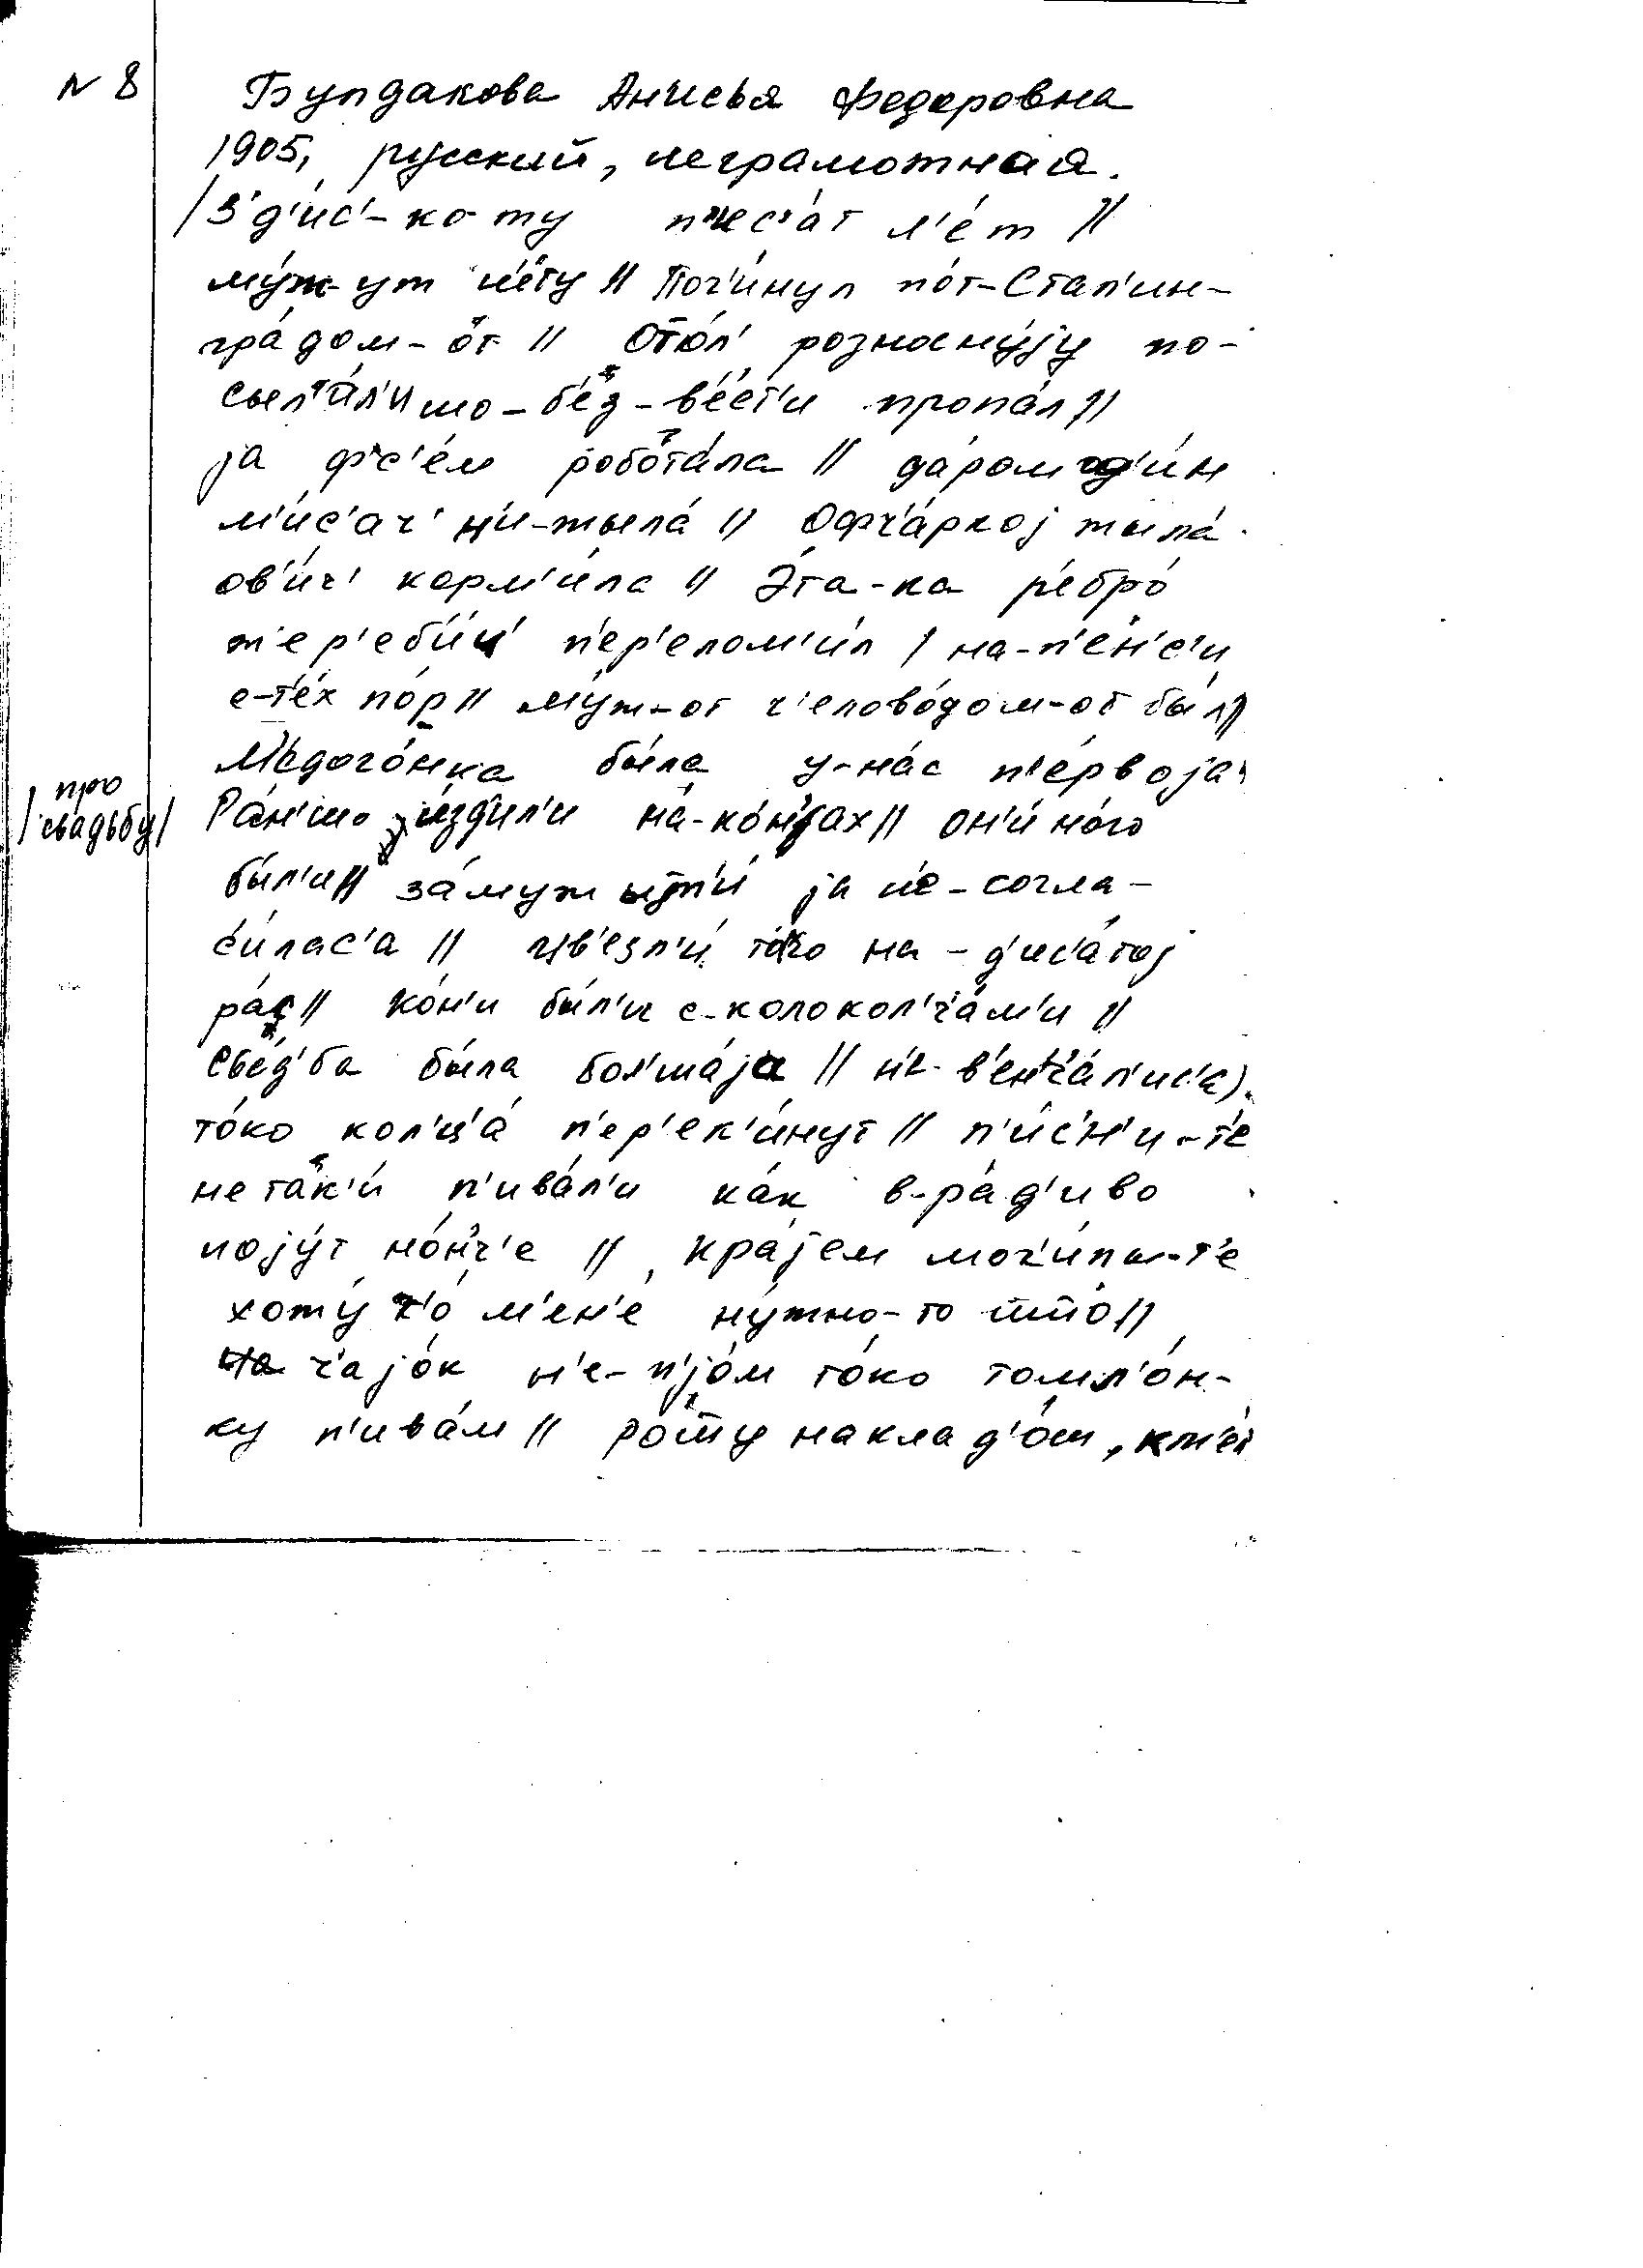 N 8
Булдакова Анисья Федоровна
1905, русский, неграмотная.
/З'д'и́с'-ко-ту п'ис'а́т л'е́т //
му́ж-ут н'е́ту // Пог'и́нул по́т-Стал'ин-
гра́дом-от // Ото́л' розноснују по-
сыл'а́л'и шо-б'ез-в'е́ст'и пропа́л //
ја ф'с'е́м робо́тала // да́ром од'и́н
м'и́с'ач' н'и-жыла́ // Офч'а́ркој жыла́
ов'и́ч' корм'и́ла // Э́та-ка р'ебро́
ж'ер'еб'и́ч' п'ер'елом'и́л / на-п'е́н'с'и
с-т'е́х по́р // му́ж-от ч'елово́дом-от бы́л //
М'едого́нка бы́ла у-на́с п'е́рвоја
/про свадьбу/
Ра́н'шо је́зд'ил'и на́-ко́н'јах // он'и́ мо́го
бы́л'и // за́муж ытт'и́ ја н'е-согла-
с'и́лас'а // ув'езл'и́ то́ко на-д'ис'а́тој
ра́з // ко́н'и бы́л'и с-колокол'ч'а́м'и //
Сва́д'ба бы́ла бол'ша́ја // н'е-в'енч'а́л'ис'а).
то́ко кол'ц'а́ п'ер'ек'и́нут // п'и́с'н'и-т'е
не та́к'и п'ива́л'и ка́к в-ра́д'иво
поју́т но́нч'е // кра́јем мог'и́лы-т'е
хожу́ ч'о́ м'ен'е́ ну́жно-то што́ //
ч'ајо́к н'е-п'јо́м то́ко томл'о́н-
ку п'ива́м // ро́шшу наклад'о́ш,